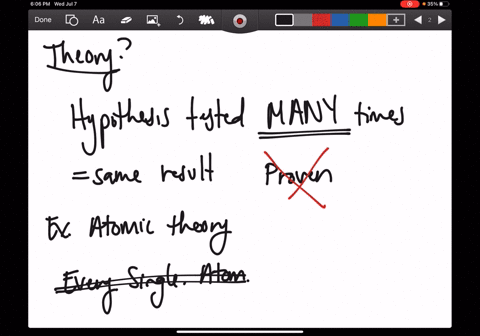 6:06 PM Wed Jul 7
35%
Done
Aa
2
Theory?
Hypothesis tested MANY times
= same result Proven
Ex Atomic theory
Every Single Atom.